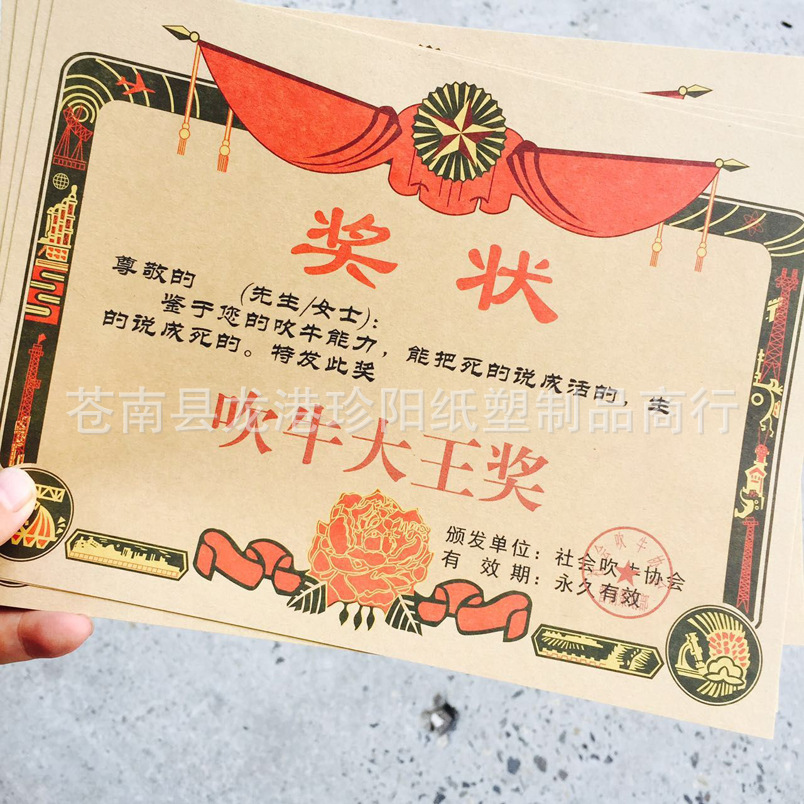 奖状
尊敬的 (先生/女士):
鉴于您的吹牛能力,能把死的说成活的,生
的说成死的。特发此奖
苍南县龙港珍阳纸塑制品商行
吹牛大王奖
颁发单位:社会吹牛协会
有效期:永久有效
社会吹牛协会